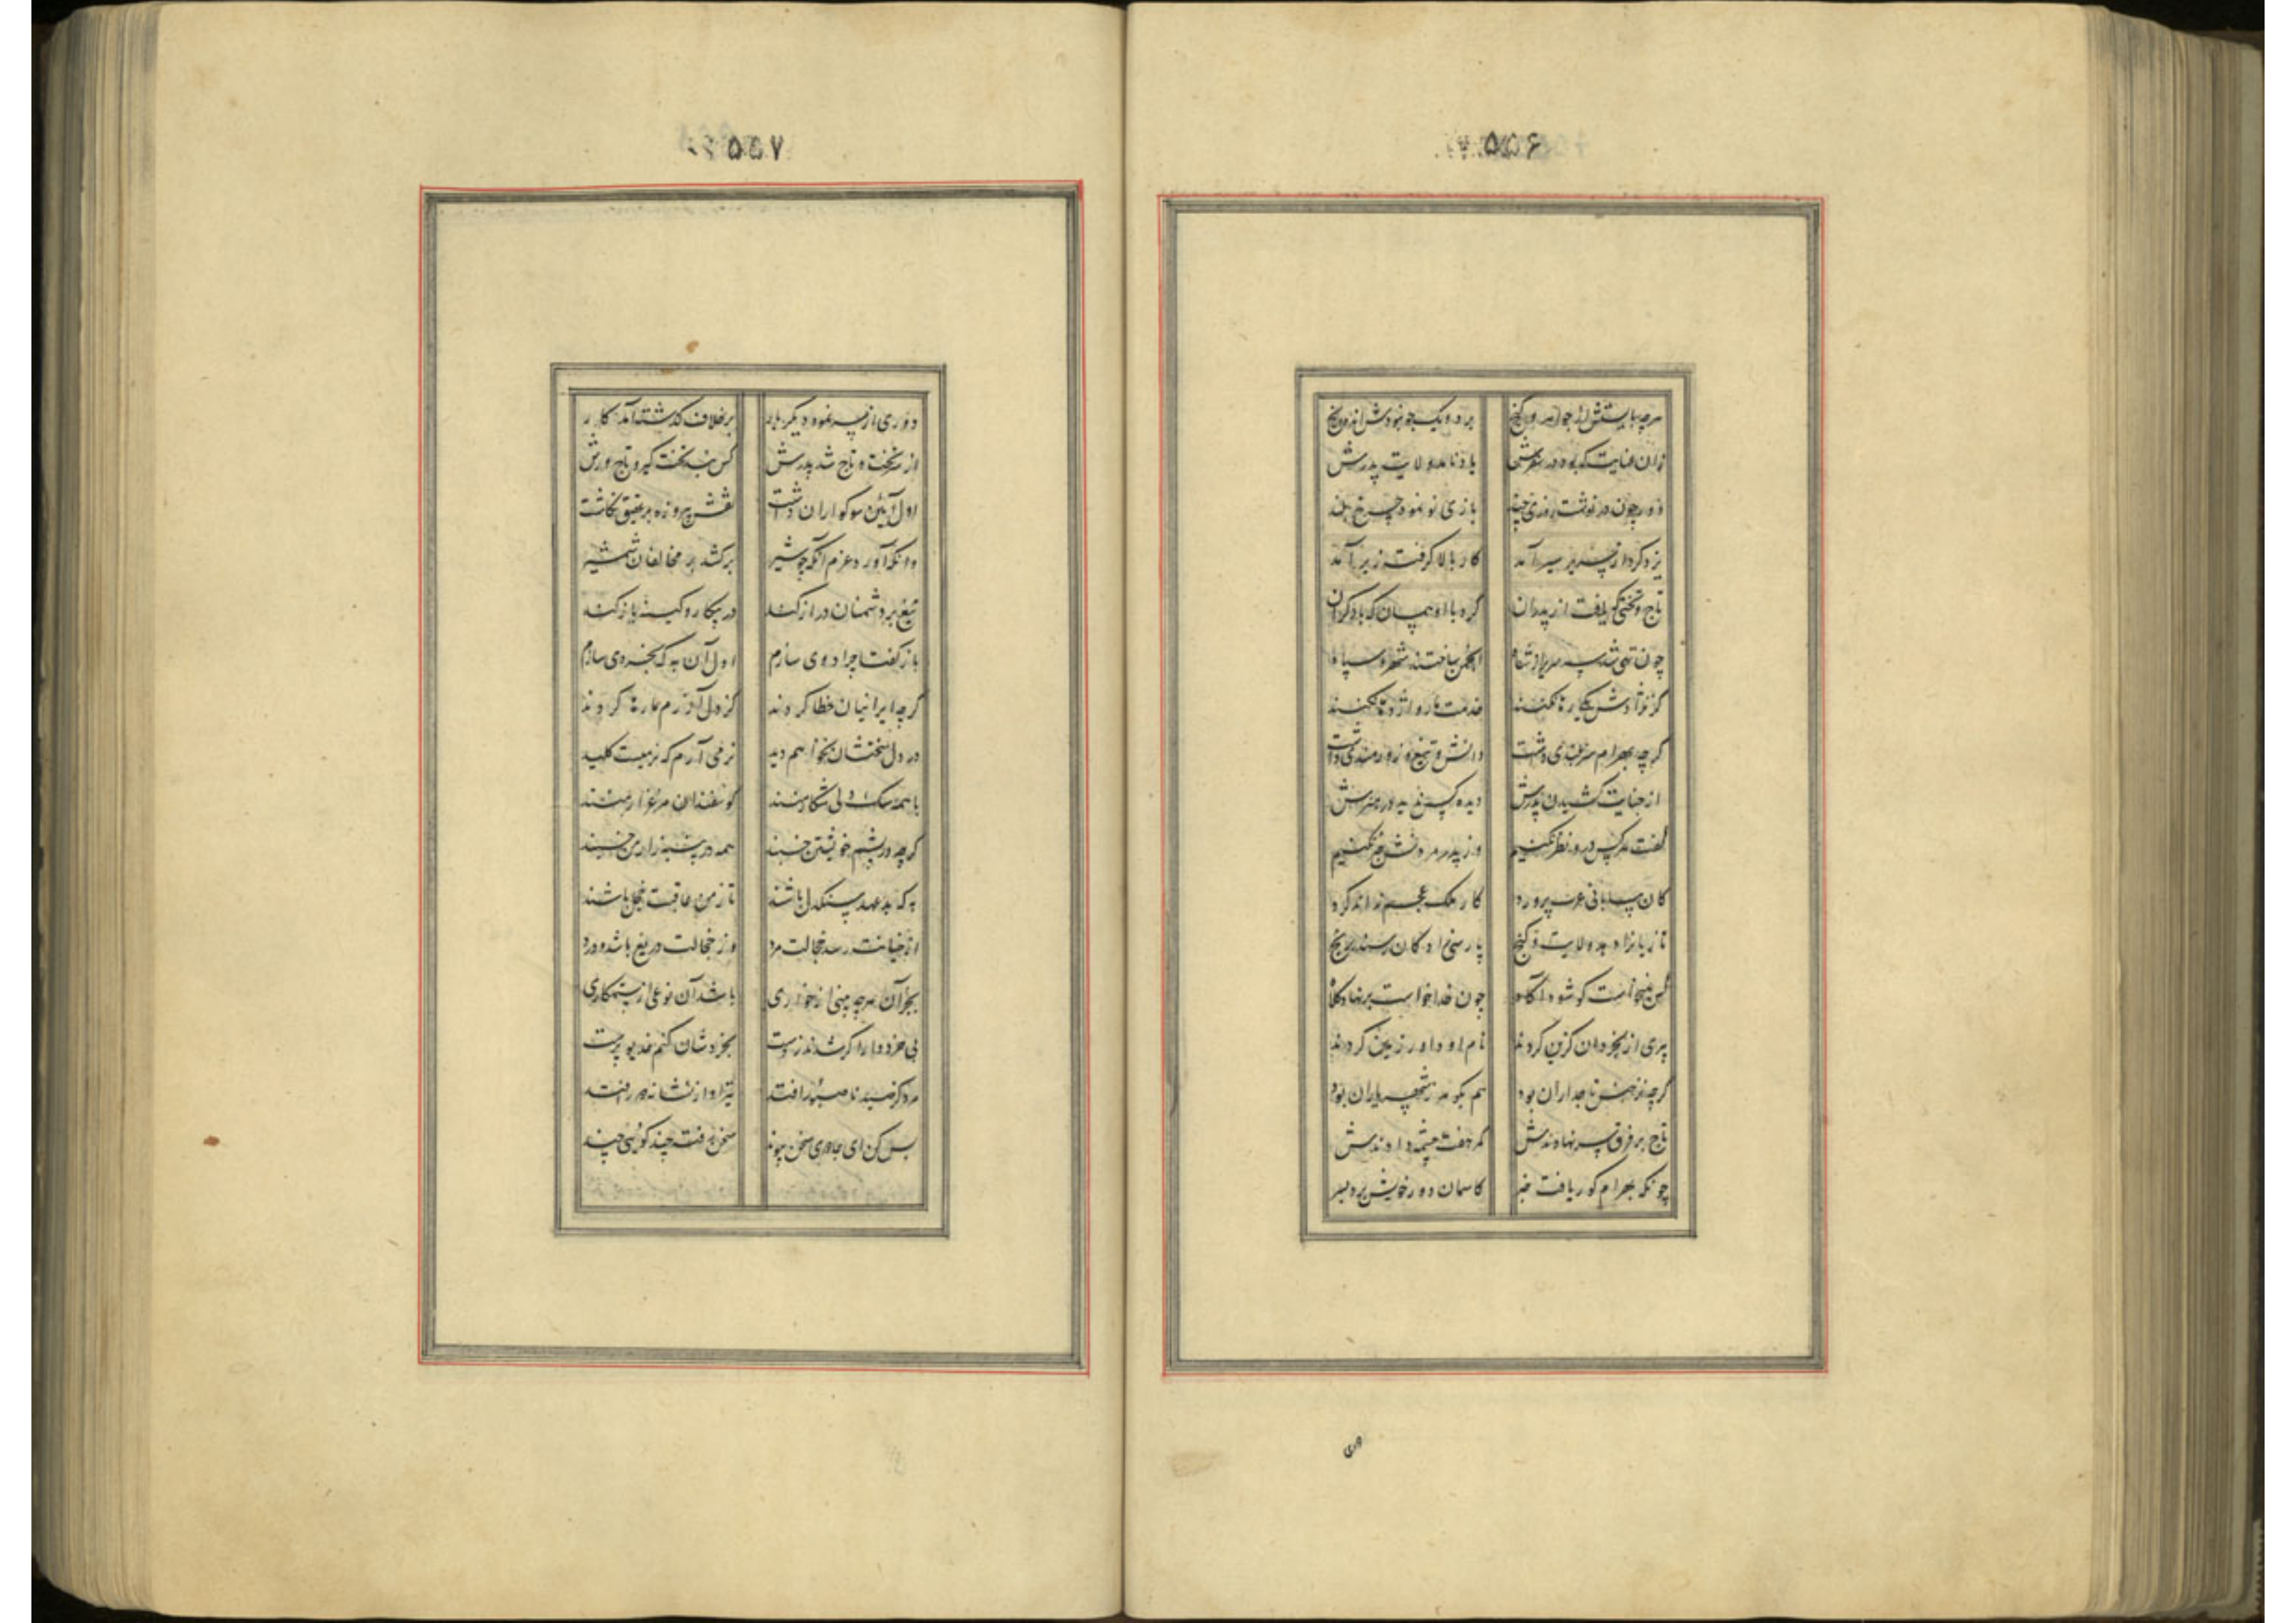 ۵۵۶
هرچه بایستش از جواهر و گنج برد و یک جو نبودش اندر رنج
زان عنایت که بود در سفرش یاد نامد ولایت پدرش
دور چون در نوشت روزی چند بازی نو نمود چرخ بلند
یزدکرد از سریر سیر آمد کار بالا گرفته زیر آمد
تاج و تختی که یافت از پدران کرد با او همان که با دگران
چون تهی شد سر سریر ز شاه انجمن ساختند شهر و سپاه
کز نژادش یکی رها نکنند خدمت مار و اژدها نکنند
گرچه بهرام سربلندی داشت دانش و تیغ و زورمندی داشت
از جنایت کشیدن پدرش دیده کس ندید در هنرش
گفت هرکس درو نظر نکنیم وز پدر مردنش خبر نکنیم
کان بیابانی عرب پرورد کار ملک عجم نداند کرد
تازیانرا دهد ولایت و گنج پارسی زادگان رسند برنج
کس نمیخواست کو شود آگاه چون خدا خواست برنهاد کلاه
پیری از بخردان گزین کردند نام او داور زمین کردند
گرچه نز جنس تاجداران بود هم بگوهر ز شهریاران بود
تاج بر فرق سر نهادندش کمر هفت چشمه دادندش
چونکه بهرام گور یافت خبر کاسمان دور خویش برد بسر
۵۵۷
دوری از سر نمود دیگر بار بر خلاف گذشته آمد کار
از سر تخت و تاج شد پدرش کس نه تخت گیر و تاج ورش
اول آئین سوکواران داشت نقش پیروزه بر عقیق نگاشت
وانکه آورد عزم آنکه چو شیر برکشد بر مخالفان شمشیر
تیغ بر دشمنان دراز کند در پیکار و کینه باز کند
باز گفتا چرا ددی سازم اول آن به که بخردی سازم
گرچه ایرانیان خطا کردند کز دل آزرم ما رها کردند
در دل سختشان نخواهم دید نرمی آرم که نرمیست کلید
با همه سگ دلی شکار منند گوسفندان مرغزار منند
گرچه در پشم خویشتن خسبند همه در پنبه زار من خسبند
به که بد عهد و سنگدل باشند تا ز من عاقبت خجل باشند
از خیانت رسد خجالت مرد وز خجالت دریغ باشد و درد
بجز آن هرچه بینی از خواری باشد آن نوعی از ستمکاری
بی خرد وار اگر شدند ز دست بخردشان کنم خدیو پرست
مرد کز صید نا صبور افتد تیر او از نشانه دور افتد
بس کن ای جادوی سخن پیوند سخن رفته چند گوئی چند